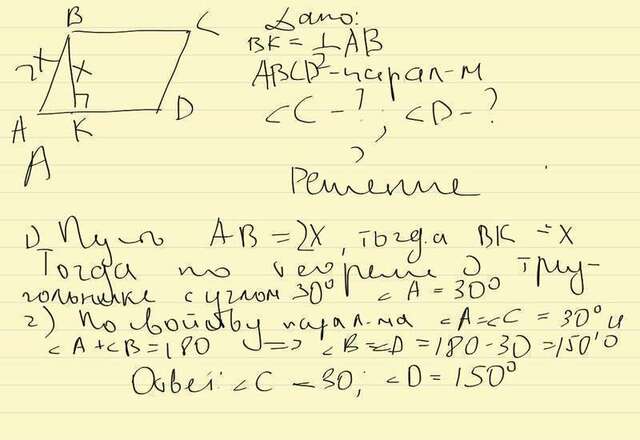 B C
2x x
A K D
A
Дано:
BK = 1/2 AB
ABCD - парал-м
<C - ? ; <D - ?
Решение
1) Пусть AB = 2X, тогда BK = X
Тогда по теореме о тре-
угольнике с углом 30° <A = 30°
2) По свойству парал-ма <A=<C = 30° и
<A + <B = 180 => <B=<D = 180-30 = 150°
Ответ: <C = 30; <D = 150°